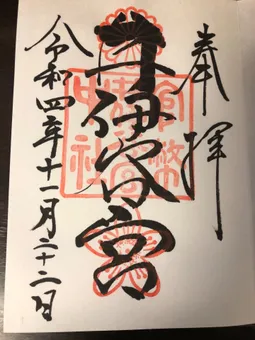 奉拝
井伊谷宮
令和四年十一月二十二日